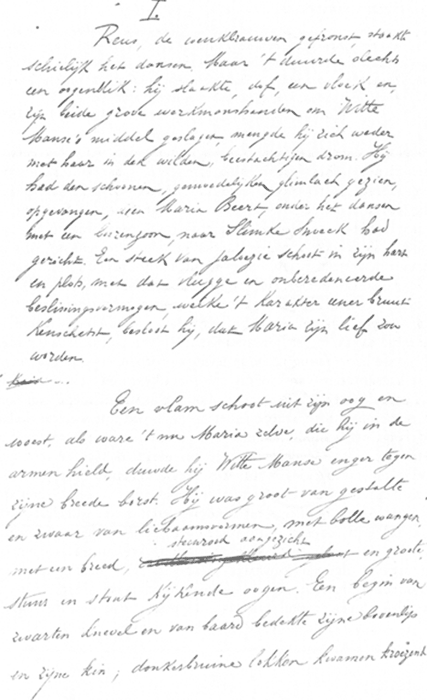 I.
Reus, de wenkbrauwen gefronst, staakte
schielijk het dansen. Maar 't duurde slechts
een oogenblik: hij slaakte, dof, een vloek en,
zijn beide grove werkmanshanden om Witte
Manse's middel geslagen, mengde hij zich weder
met haar in den wilden, beestachtigen drom. Hij
had den schoonen, gemoedelijken glimlach gezien,
opgevangen, dien Maria Beert, onder het dansen
met een boerenzoon, naar Slimke Snoeck had
gericht. Een steek van jaloezie schoot in zijn hart
en plots, met dat vlugge en onberedeneerde
beslissingsvermogen, welke 't karakter eener bruut
kenschetst, besloot hij, dat Maria zijn lief zou
worden.
Een vlam schoot uit zijn oog en
woest, als ware 't nu Maria zelve, die hij in de
armen hield, duwde hij Witte Manse enger tegen
zijne breede borst. Hij was groot van gestalte
en zwaar van lichaamsvormen, met bolle wangen,
steenrood aangezicht
met een breed, en groote,
stuur en straf kijkende oogen. Een begin van
zwarten knevel en van baard bedekte zijne bovenlip
en zijne kin; donkerbruine lokken kwamen kroezend